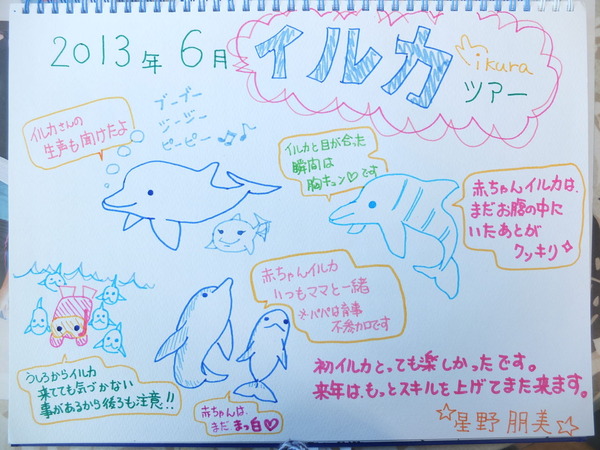 2013年6月
イルカ
ikura
ツアー
イルカさんの
生声も聞けたよ
ブーブー
ジージー
ピーピー
イルカと目が合った
瞬間は
胸キュン♡です
赤ちゃんイルカは、
まだお腹の中に
いたあとが
クッキリ
赤ちゃんイルカ
いつもママと一緒
※パパは育事
不参加です
うしろからイルカ
来てても気づかない
事があるから後ろも注意!!
赤ちゃんは、
まだまっ白♡
初イルカとっても楽しかったです。
来年は、もっとスキルを上げてまた来ます。
☆星野朋美☆